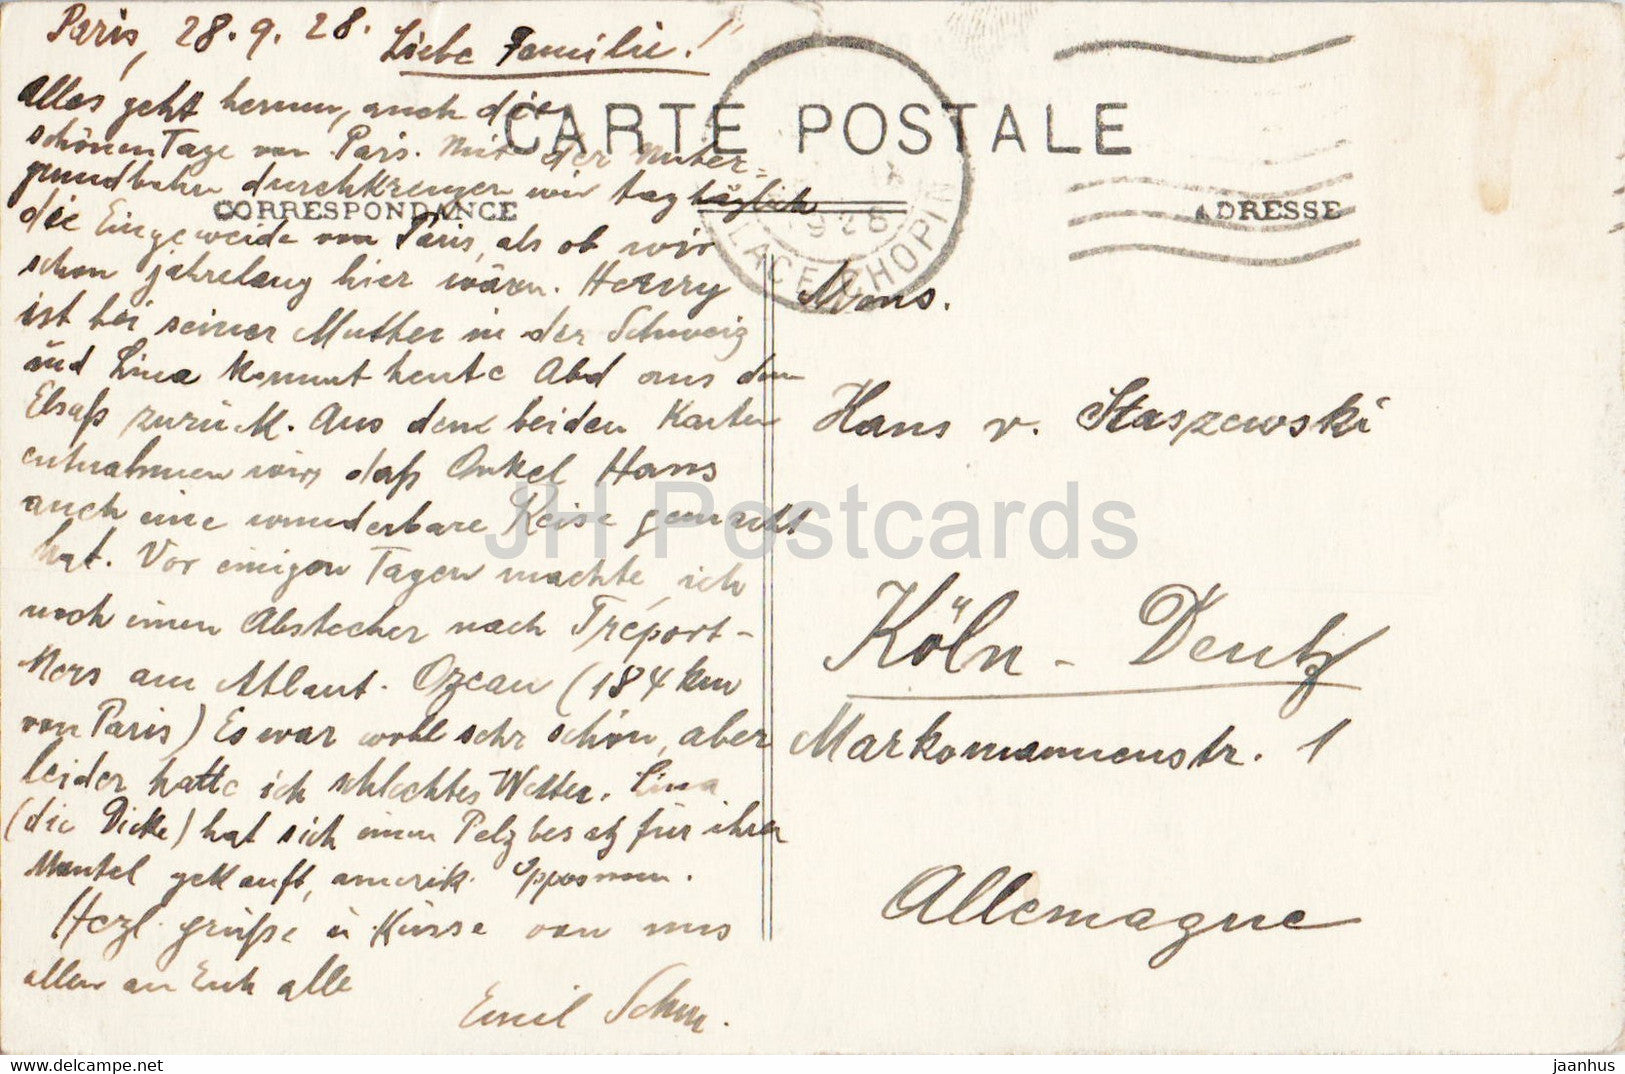 Paris, 28.9.28.
Liebe Familie!
Alles geht herum, auch die
schönen Tage von Paris. Mit der Unter-
grundbahn durchkreuzen wir tagtäglich
die Eingeweide von Paris, als ob wir
schon jahrelang hier wären. Henry
ist bei seiner Mutter in der Schweiz
und Lina kommt heute Abd aus dem
Elsaß zurück. Aus den beiden Karten
entnahmen wir, daß Onkel Hans
auch eine wunderbare Reise gemacht
hat. Vor einigen Tagen machte ich
noch einen Abstecher nach Tréport-
Mers am Atlant. Ozean (184 km
von Paris) Es war wohl sehr schön, aber
leider hatte ich schlechtes Wetter. Lina
(die Dicke) hat sich einen Pelzbesatz für ihren
Mantel gekauft, amerik. Oppossum.
Herzl. Grüße u Küsse von uns
allen an Euch alle
Emil Schm.
CARTE POSTALE
CORRESPONDANCE
ADRESSE
PLACE CHOPIN
1928
Mons.
Hans v. Staszewski
Köln - Deutz
Markomannenstr. 1
Allemagne
JH Postcards
https://jhpostcards.com
jaanhus